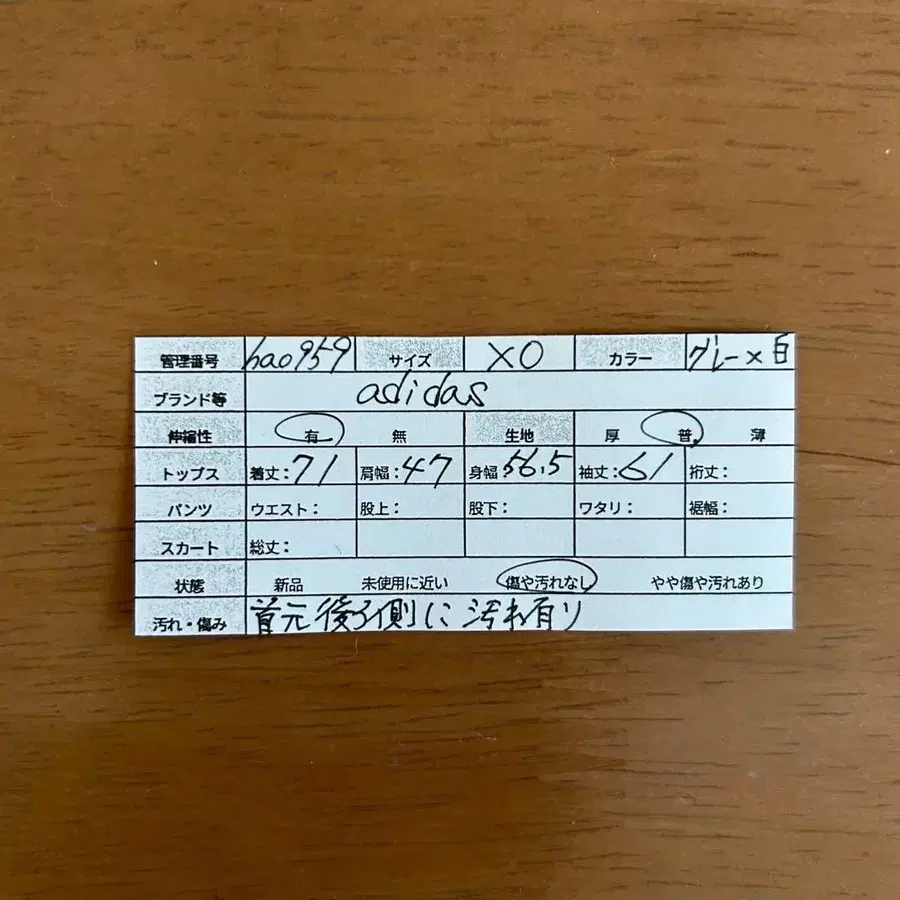 管理番号 hao959 サイズ XO カラー グレー×白
ブランド等 adidas
伸縮性 有 無 生地 厚 普 薄
トップス 着丈:71 肩幅:47 身幅:56.5 袖丈:61 裄丈:
パンツ ウエスト: 股上: 股下: ワタリ: 裾幅:
スカート 総丈:
状態 新品 未使用に近い 傷や汚れなし やや傷や汚れあり
汚れ・傷み 首元後ろ側に汚れ有り